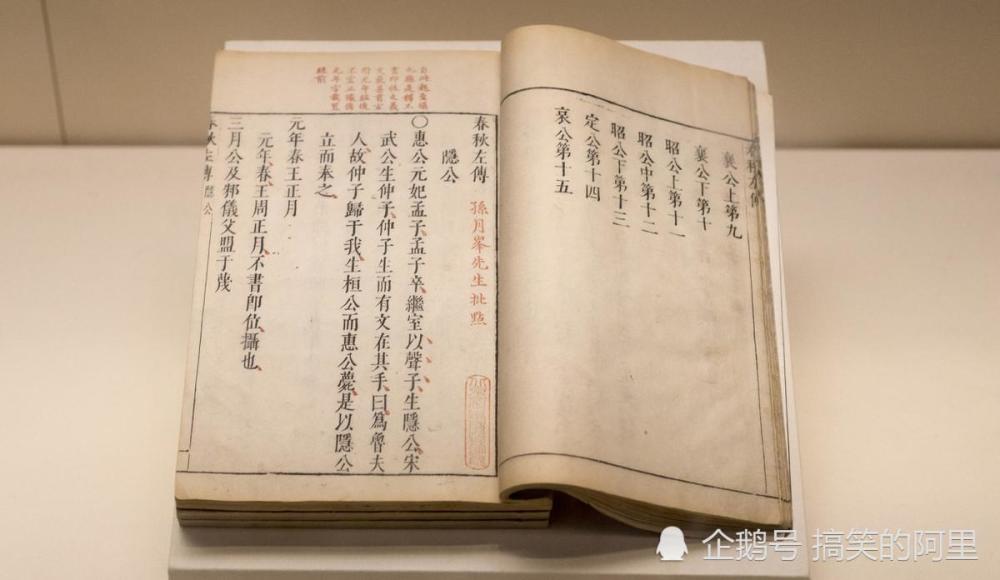 襄公上第九
襄公下第十
昭公上第十一
昭公中第十二
昭公下第十三
定公第十四
哀公第十五
春秋左傳 孫月峯先生批點
隱公
○惠公元妃孟子孟子卒繼室以聲子生隱公宋
武公生仲子仲子生而有文在其手曰爲魯夫
人故仲子歸于我生桓公而惠公薨是以隱公
立而奉之
元年春王正月
元年春王周正月不書卽位攝也
三月公及邾儀父盟于蔑
春秋左傳 隱公
企鹅号 搞笑的阿里